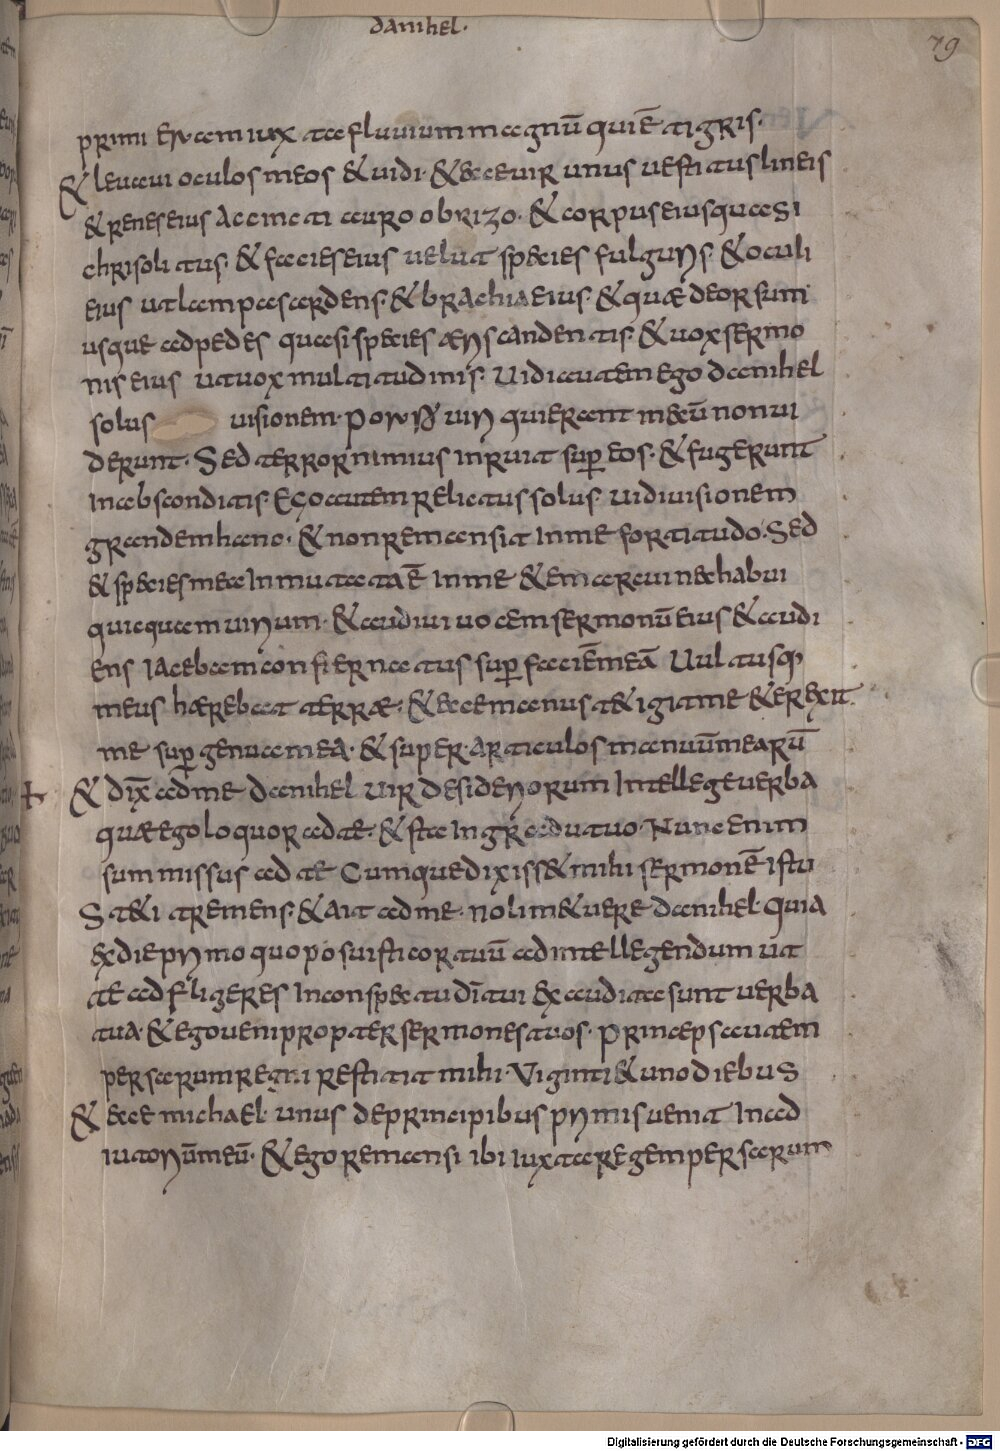 danihel·
79
primi eram iuxta fluuium magnū qui ē tigris·
& leuaui oculos meos & uidi· & ecce uir unus uestitus lineis
& renes eius accincti auro obrizo· & corpus eius quasi
chrisolitus· & facies eius uelut species fulguris· & oculi
eius ut lampas ardens· & brachia eius· & quæ deorsum
usque ad pedes quasi species æris candentis· & uox sermo
nis eius ut uox multitudinis· Uidi autem ego danihel
solus uisionem· Porro uiri qui erant mecū non ui
derunt· Sed terror nimius inruit sup̄ eos· & fugerunt
in absconditis· Ego autem relictus solus· uidi uisionem
grandem hanc· & non remansit in me fortitudo· Sed
& species mea inmutata ē in me & emarcui nec habui
quicquam uirium· & audiui uocem sermonū eius & audi
ens iacebam consternatus sup̄ faciē meā Uultusq·
meus hærebat terræ· & ecce manus tetigit me & erexit
me sup̄ genua mea· & super articulos manuū mearū
& dix̄ ad me danihel uir desideriorum intellege uerba
quæ ego loquor ad te· & sta in gradu tuo· Nunc enim
sum missus ad te Cumque dixiss& mihi sermonē istū
St&i tremens· & ait ad me· noli m&uere danihel· quia
ex die primo quo posuisti cor tuū ad intellegendum ut
te adfligeres in conspectu dī tui exaudita sunt uerba
tua· & ego ueni propter sermones tuos· Princeps autem
persarum regni restitit mihi· Viginti & uno diebus
& ecce michael· unus de principibus primis uenit in ad
iutoriū meū· & ego remansi ibi iuxta regem persarum
Digitalisierung gefördert durch die Deutsche Forschungsgemeinschaft - DFG